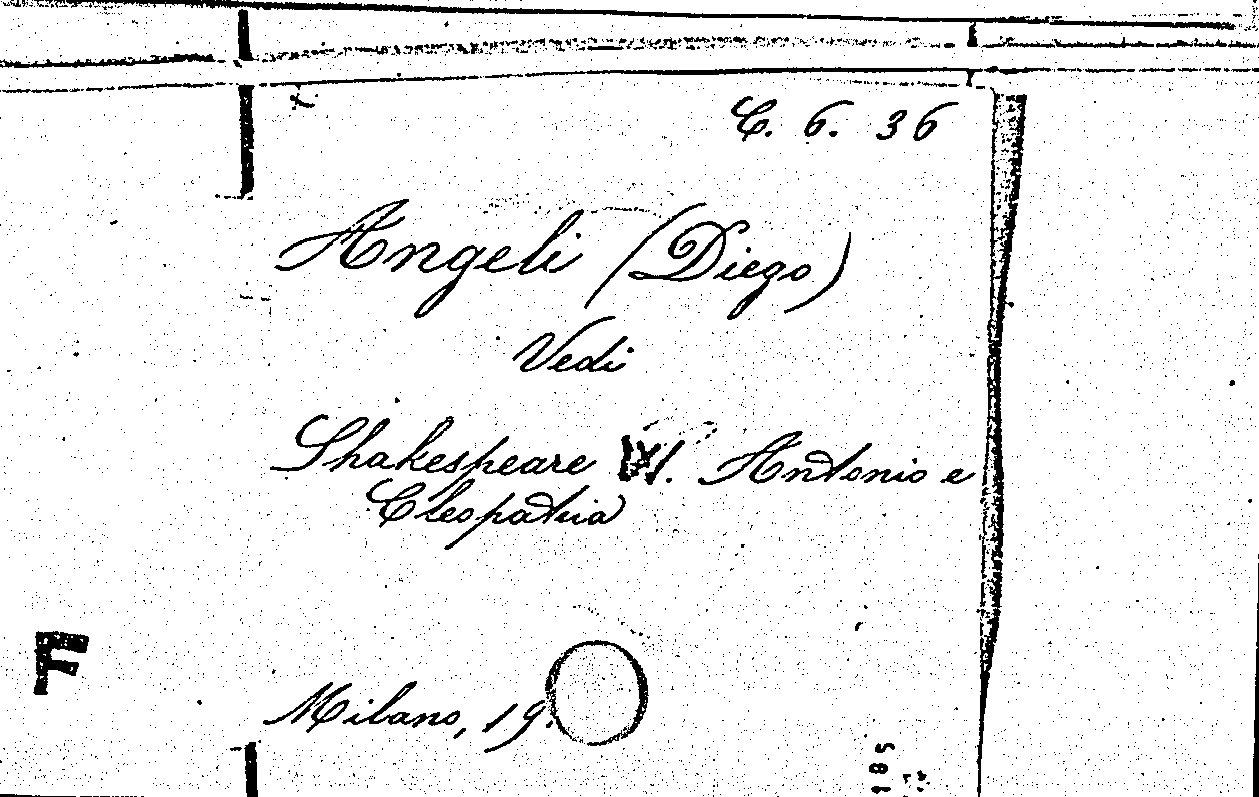 C. 6. 36
Angeli (Diego)
Vedi
Shakespeare W. Antonio e
Cleopatra
F
Milano, 19
185